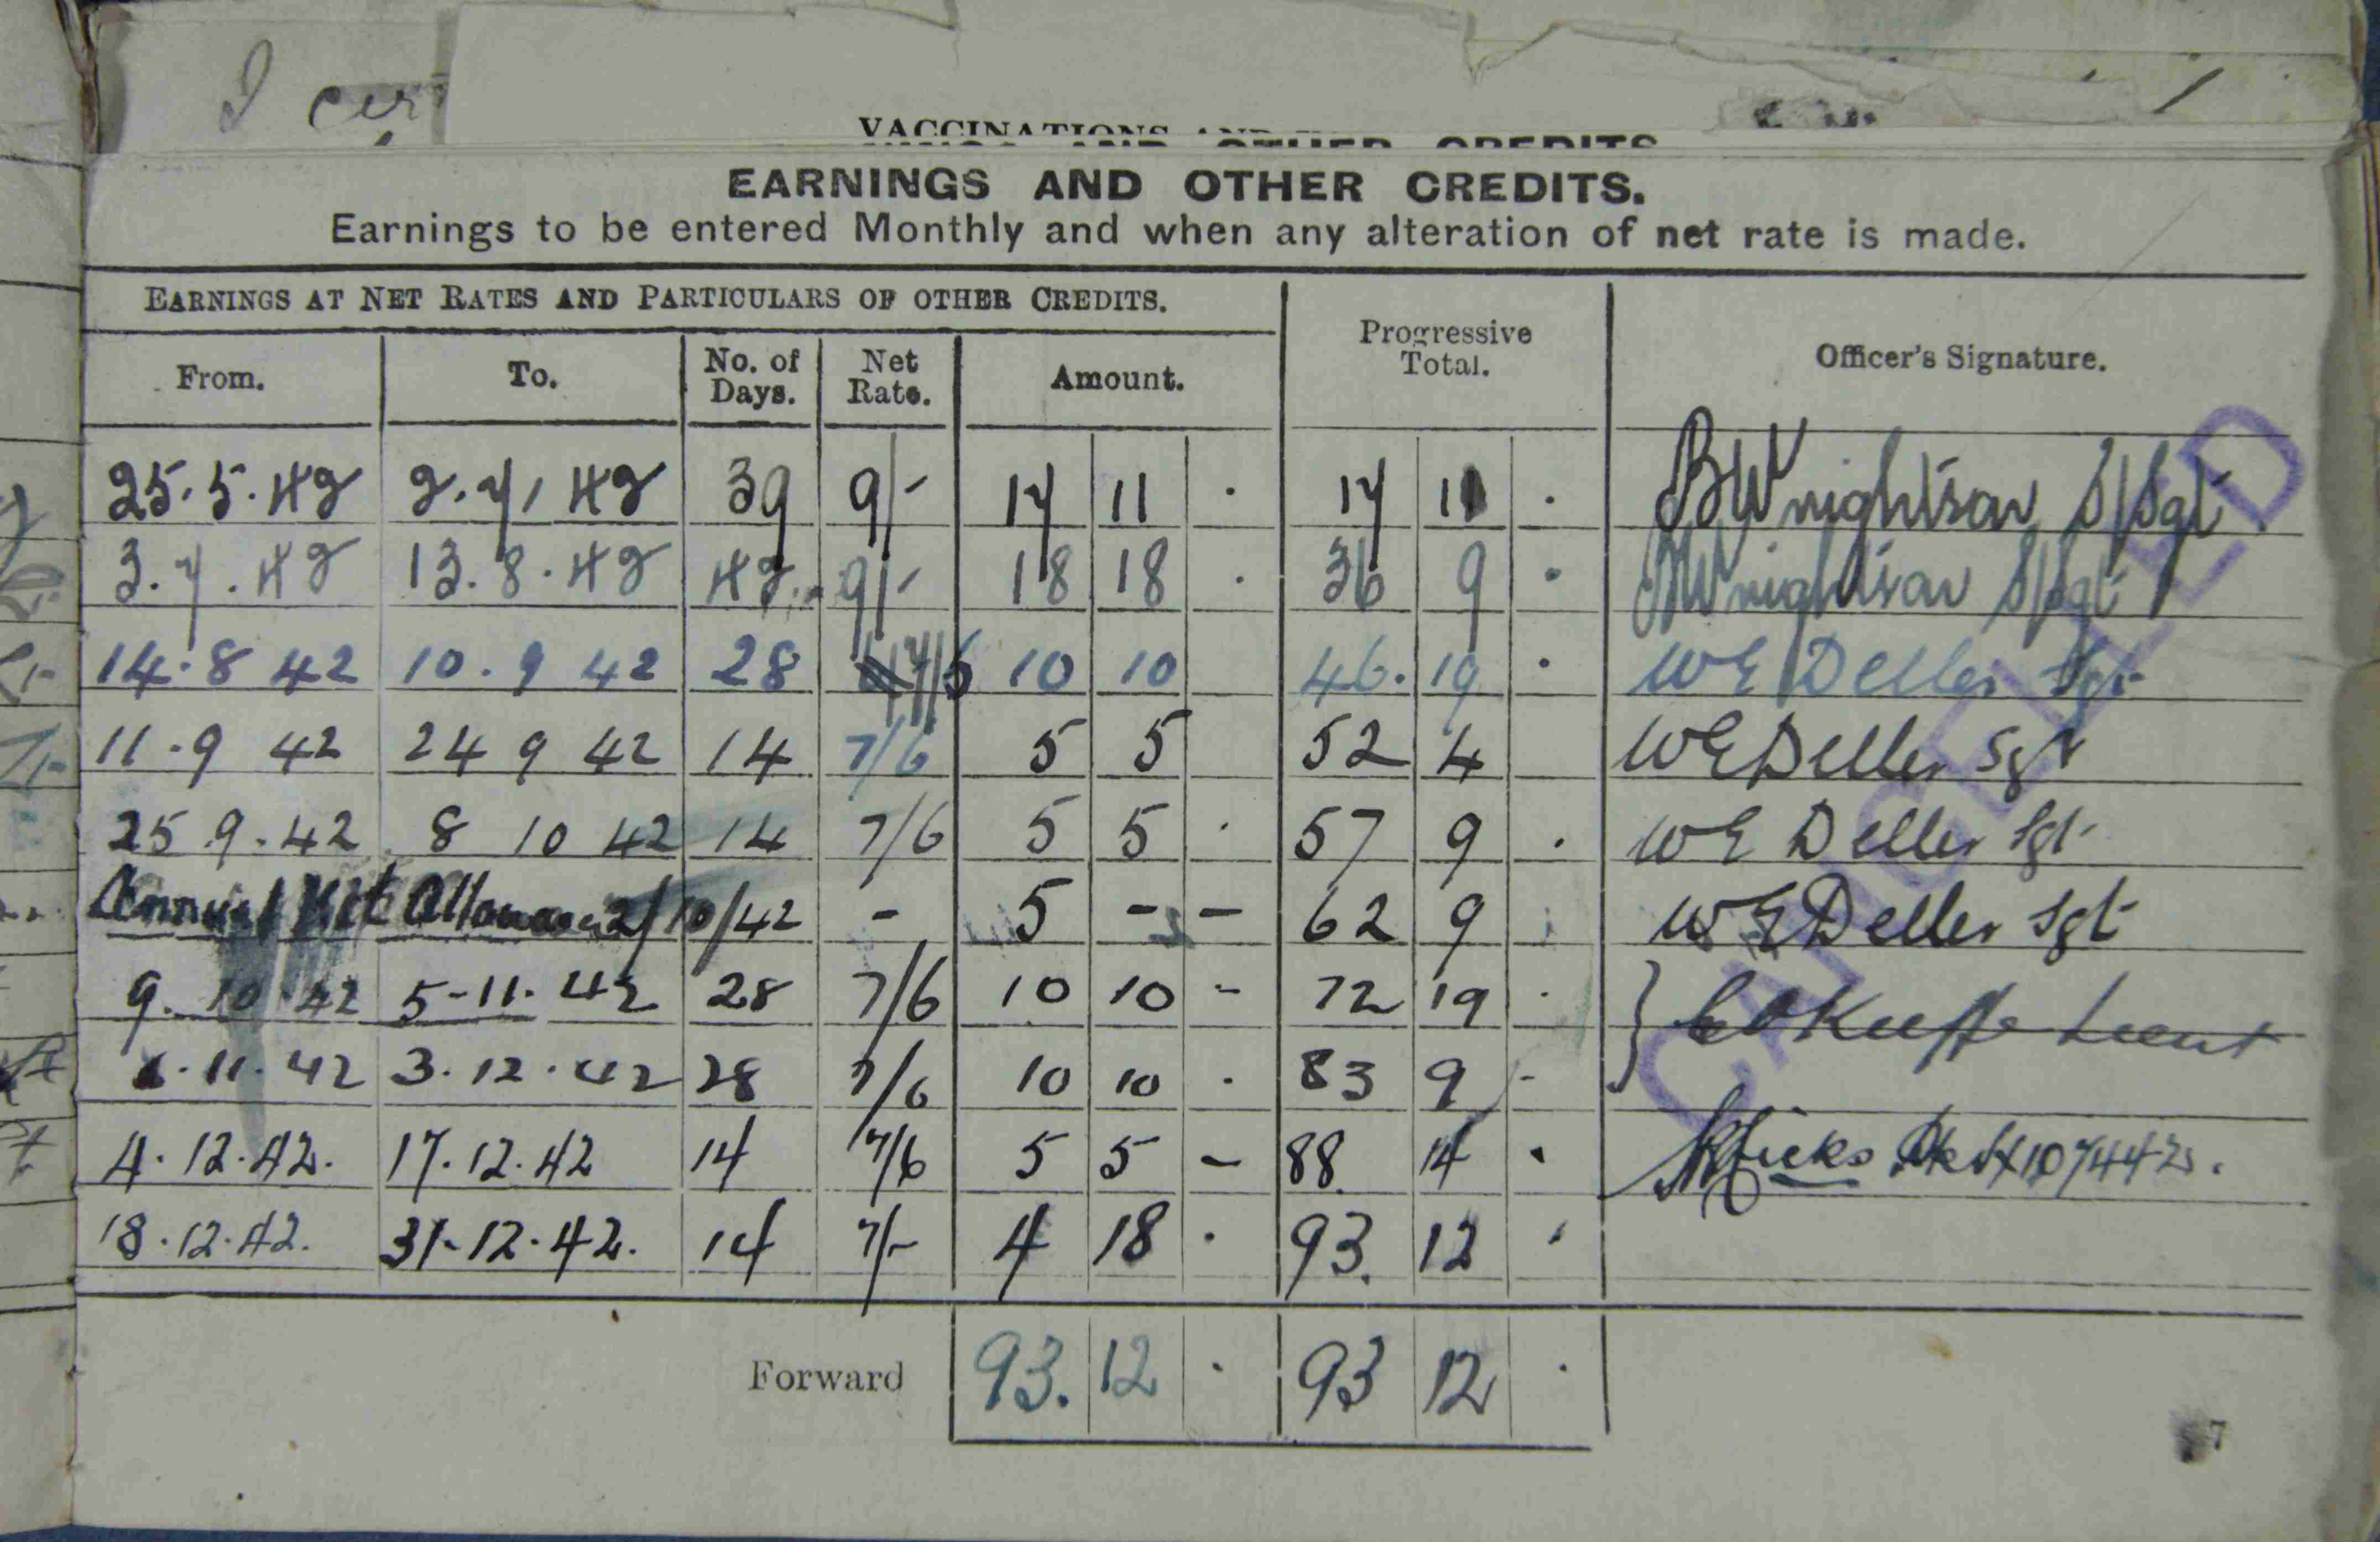 I cer
VACCINATIONS
EARNINGS AND OTHER CREDITS.
Earnings to be entered Monthly and when any alteration of net rate is made.
EARNINGS AT NET RATES AND PARTICULARS OF OTHER CREDITS.
From. To. No. of Days. Net Rate. Amount. Progressive Total. Officer's Signature.
25.5.42 2.7.42 39 9/- 17 11 . 17 11 . S/Sgt
3.7.42 13.8.42 42 9/- 18 18 . 36 9 . S/Sgt
14.8 42 10.9 42 28 7/6 10 10 46. 19 . W E Deller Sgt
11.9 42 24 9 42 14 7/6 5 5 52 4 W E Deller Sgt
25 9.42 8 10 42 14 7/6 5 5 . 57 9 . W E Deller Sgt
Annual Kit Allowance 2/10/42 - 5 - - 62 9 W E Deller Sgt
9.10.42 5-11.42 28 7/6 10 10 - 72 19 . O'Keeffe Lieut
6.11.42 3.12.42 28 7/6 10 10 . 83 9 -
4.12.42. 17.12.42 14 7/6 5 5 - 88 14 .
18.12.42. 31-12.42. 14 7/- 4 18 . 93. 12 .
Forward 93. 12 . 93 12 .
CANCELLED
7